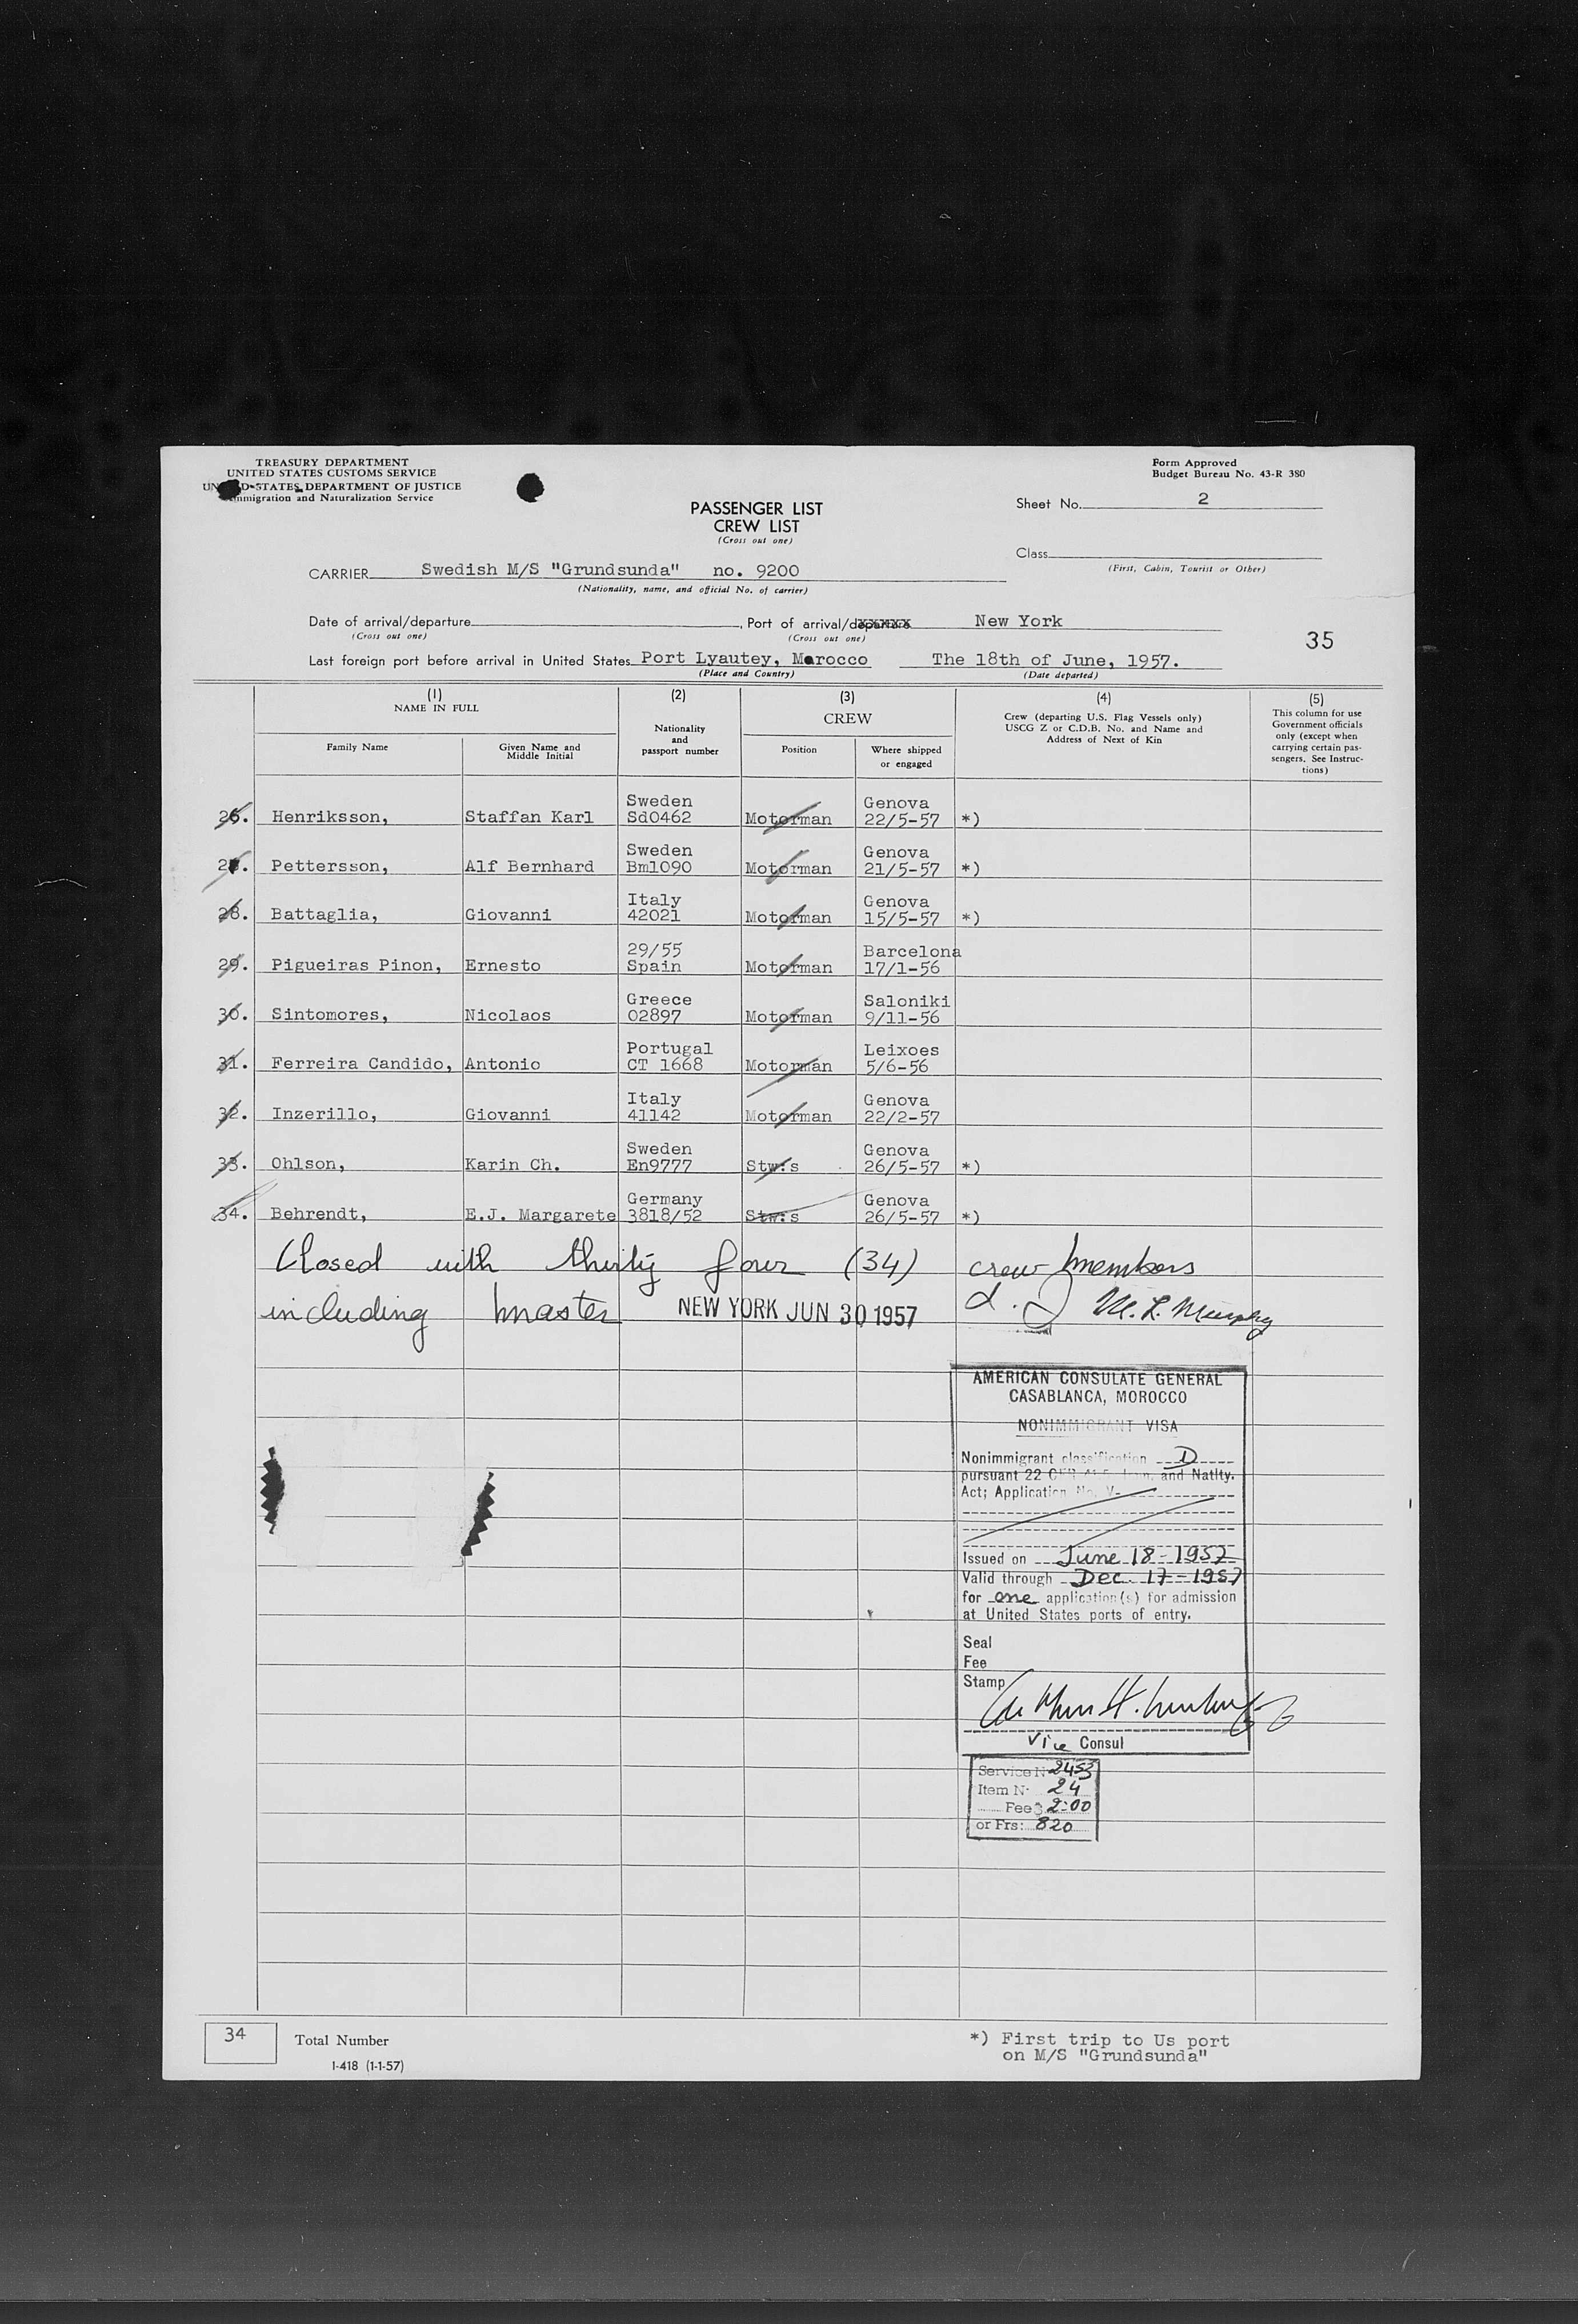 TREASURY DEPARTMENT
UNITED STATES CUSTOMS SERVICE
UNITED STATES DEPARTMENT OF JUSTICE
Immigration and Naturalization Service
Form Approved
Budget Bureau No. 43-R 380
PASSENGER LIST
CREW LIST
(Cross out one)
Sheet No. 2
Class
(First, Cabin, Tourist or Other)
CARRIER Swedish M/S "Grundsunda" no. 9200
(Nationality, name, and official No. of carrier)
Date of arrival/departure , Port of arrival/departure New York
(Cross out one) (Cross out one)
35
Last foreign port before arrival in United States Port Lyautey, Marocco The 18th of June, 1957.
(Place and Country) (Date departed)
(1) NAME IN FULL
Family Name
Given Name and Middle Initial
(2)
Nationality and passport number
(3)
CREW
Position
Where shipped or engaged
(4)
Crew (departing U.S. Flag Vessels only)
USCG Z or C.D.B. No. and Name and
Address of Next of Kin
(5)
This column for use
Government officials
only (except when
carrying certain pas-
sengers. See Instruc-
tions)
Sweden Genova
26. Henriksson, Staffan Karl Sd0462 Motorman 22/5-57 *)
Sweden Genova
27. Pettersson, Alf Bernhard Bm1090 Motorman 21/5-57 *)
Italy Genova
28. Battaglia, Giovanni 42021 Motorman 15/5-57 *)
29/55 Barcelona
29. Pigueiras Pinon, Ernesto Spain Motorman 17/1-56
Greece Saloniki
30. Sintomores, Nicolaos 02897 Motorman 9/11-56
Portugal Leixoes
31. Ferreira Candido, Antonio CT 1668 Motorman 5/6-56
Italy Genova
32. Inzerillo, Giovanni 41142 Motorman 22/2-57
Sweden Genova
33. Ohlson, Karin Ch. En9777 Stw:s 26/5-57 *)
Germany Genova
34. Behrendt, E.J. Margarete 3818/52 Stw:s 26/5-57 *)
Closed with thirty four (34) crew members
including master NEW YORK JUN 30 1957 M. L. Murphy
AMERICAN CONSULATE GENERAL
CASABLANCA, MOROCCO
NONIMMIGRANT VISA
Nonimmigrant classification D
pursuant 22 CFR and Natlty.
Act; Application No. V-
Issued on June 18-1957
Valid through Dec. 17-1957
for one application(s) for admission
at United States ports of entry.
Seal
Fee
Stamp
Vice Consul
Service N 2453
Item N 24
Fee $ 2.00
or Frs: 820
34 Total Number
I-418 (1-1-57)
*) First trip to Us port
on M/S "Grundsunda"